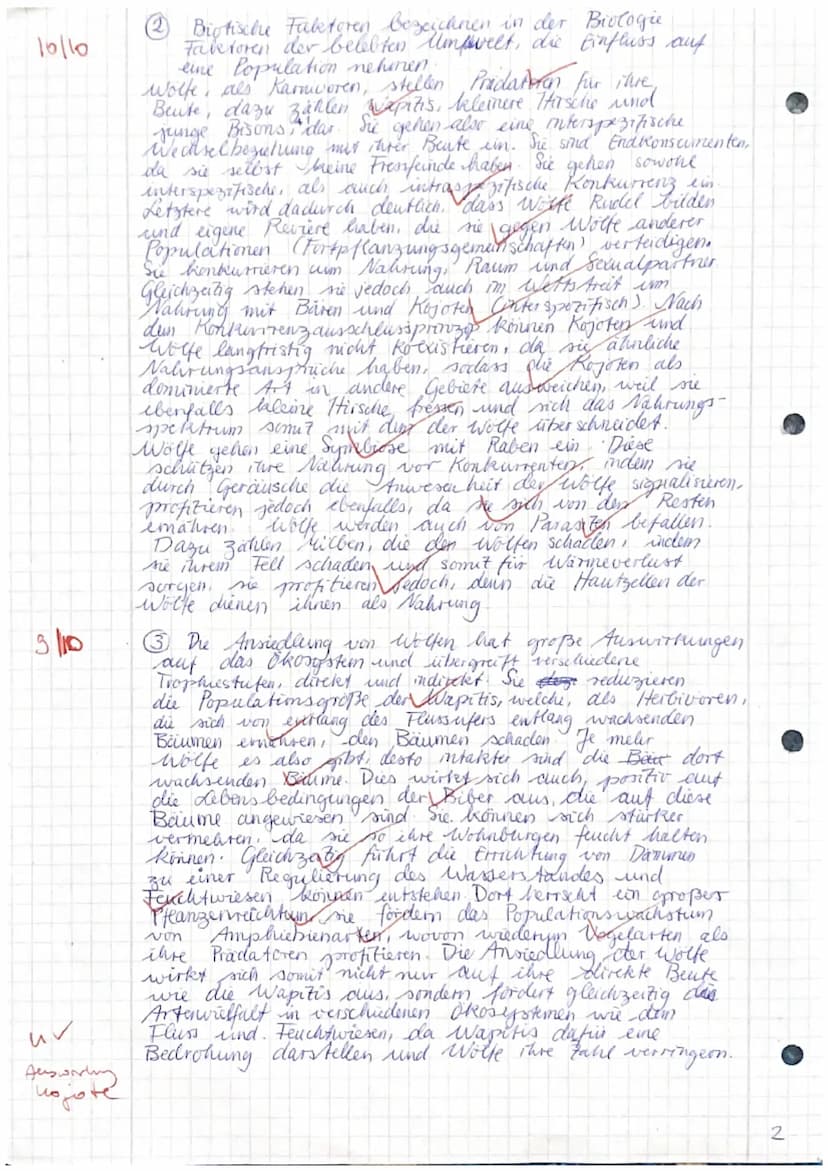 10/10
② Biotische Faktoren bezeichnen in der Biologie
Faktoren der belebten Umwelt, die Einfluss auf
eine Population nehmen.
Wölfe, als Karnivoren, stellen Prädatoren für ihre
Beute, dazu zählen Wapitis, kleinere Hirsche und
junge Bisons, dar. Sie gehen also eine interspezifische
Wechselbeziehung mit ihrer Beute ein. Sie sind Endkonsumenten,
da sie selbst keine Fressfeinde haben. Sie gehen sowohl
interspezifische, als auch intraspezifische Konkurrenz ein.
Letztere wird dadurch deutlich, dass Wölfe Rudel bilden
und eigene Reviere haben, die sie gegen Wölfe anderer
Populationen (Fortpflanzungsgemeinschaften) verteidigen.
Sie konkurrieren um Nahrung, Raum und Sexualpartner.
Gleichzeitig stehen sie jedoch auch im Wettstreit um
Nahrung mit Bären und Kojoten (interspezifisch). Nach
dem Konkurrenzausschlussprinzip können Kojoten und
Wölfe langfristig nicht koexistieren, da sie ähnliche
Nahrungsansprüche haben, sodass die Kojoten als
dominierte Art in andere Gebiete ausweichen, weil sie
ebenfalls kleine Hirsche fressen und sich das Nahrungs-
spektrum somit mit dem der Wölfe überschneidet.
Wölfe gehen eine Symbiose mit Raben ein. Diese
schützen ihre Nahrung vor Konkurrenten, indem sie
durch Geräusche die Anwesenheit der Wölfe signalisieren,
profitieren jedoch ebenfalls, da sie sich von den Resten
ernähren. Wölfe werden auch von Parasiten befallen.
Dazu zählen Milben, die den Wölfen schaden, indem
sie ihrem Fell schaden und somit für Wärmeverlust
sorgen, sie profitieren jedoch, denn die Hautzellen der
Wölfe dienen ihnen als Nahrung.
9/10
③ Die Ansiedlung von Wölfen hat große Auswirkungen
auf das Ökosystem und übergreift verschiedene
Trophiestufen, direkt und indirekt. Sie reduzieren
die Populationsgröße der Wapitis, welche, als Herbivoren,
die sich von entlang des Flussufers entlang wachsenden
Bäumen ernähren, den Bäumen schaden. Je mehr
Wölfe es also gibt, desto intakter sind die Bäu dort
wachsenden Bäume. Dies wirkt sich auch positiv auf
die Lebensbedingungen der Biber aus, die auf diese
Bäume angewiesen sind. Sie können sich stärker
vermehren, da sie so ihre Wohnburgen feucht halten
können. Gleichzeitig führt die Errichtung von Dämmen
zu einer Regulierung des Wasserstandes und
Feuchtwiesen können entstehen. Dort herrscht ein großer
Pflanzenreichtum, sie fördern das Populationswachstum
von Amphibienarten, wovon wiederum Vogelarten als
ihre Prädatoren profitieren. Die Ansiedlung der Wölfe
wirkt sich somit nicht nur auf ihre direkte Beute
wie die Wapitis aus, sondern fördert gleichzeitig die
Artenvielfalt in verschiedenen Ökosystemen wie dem
Fluss und Feuchtwiesen, da Wapitis dafür eine
Bedrohung darstellen und Wölfe ihre Zahl verringern.
Auswirkung
Kojote
2